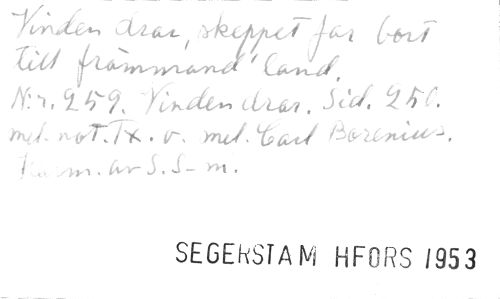 Vinden drar, skeppet far bort
till främmand' land.
N:r. 259. Vinden drar. Sid. 250.
mel. not. Tx. o. mel. Carl Borenius.
Harm. av S. S-m.
SEGERSTAM HFORS 1953